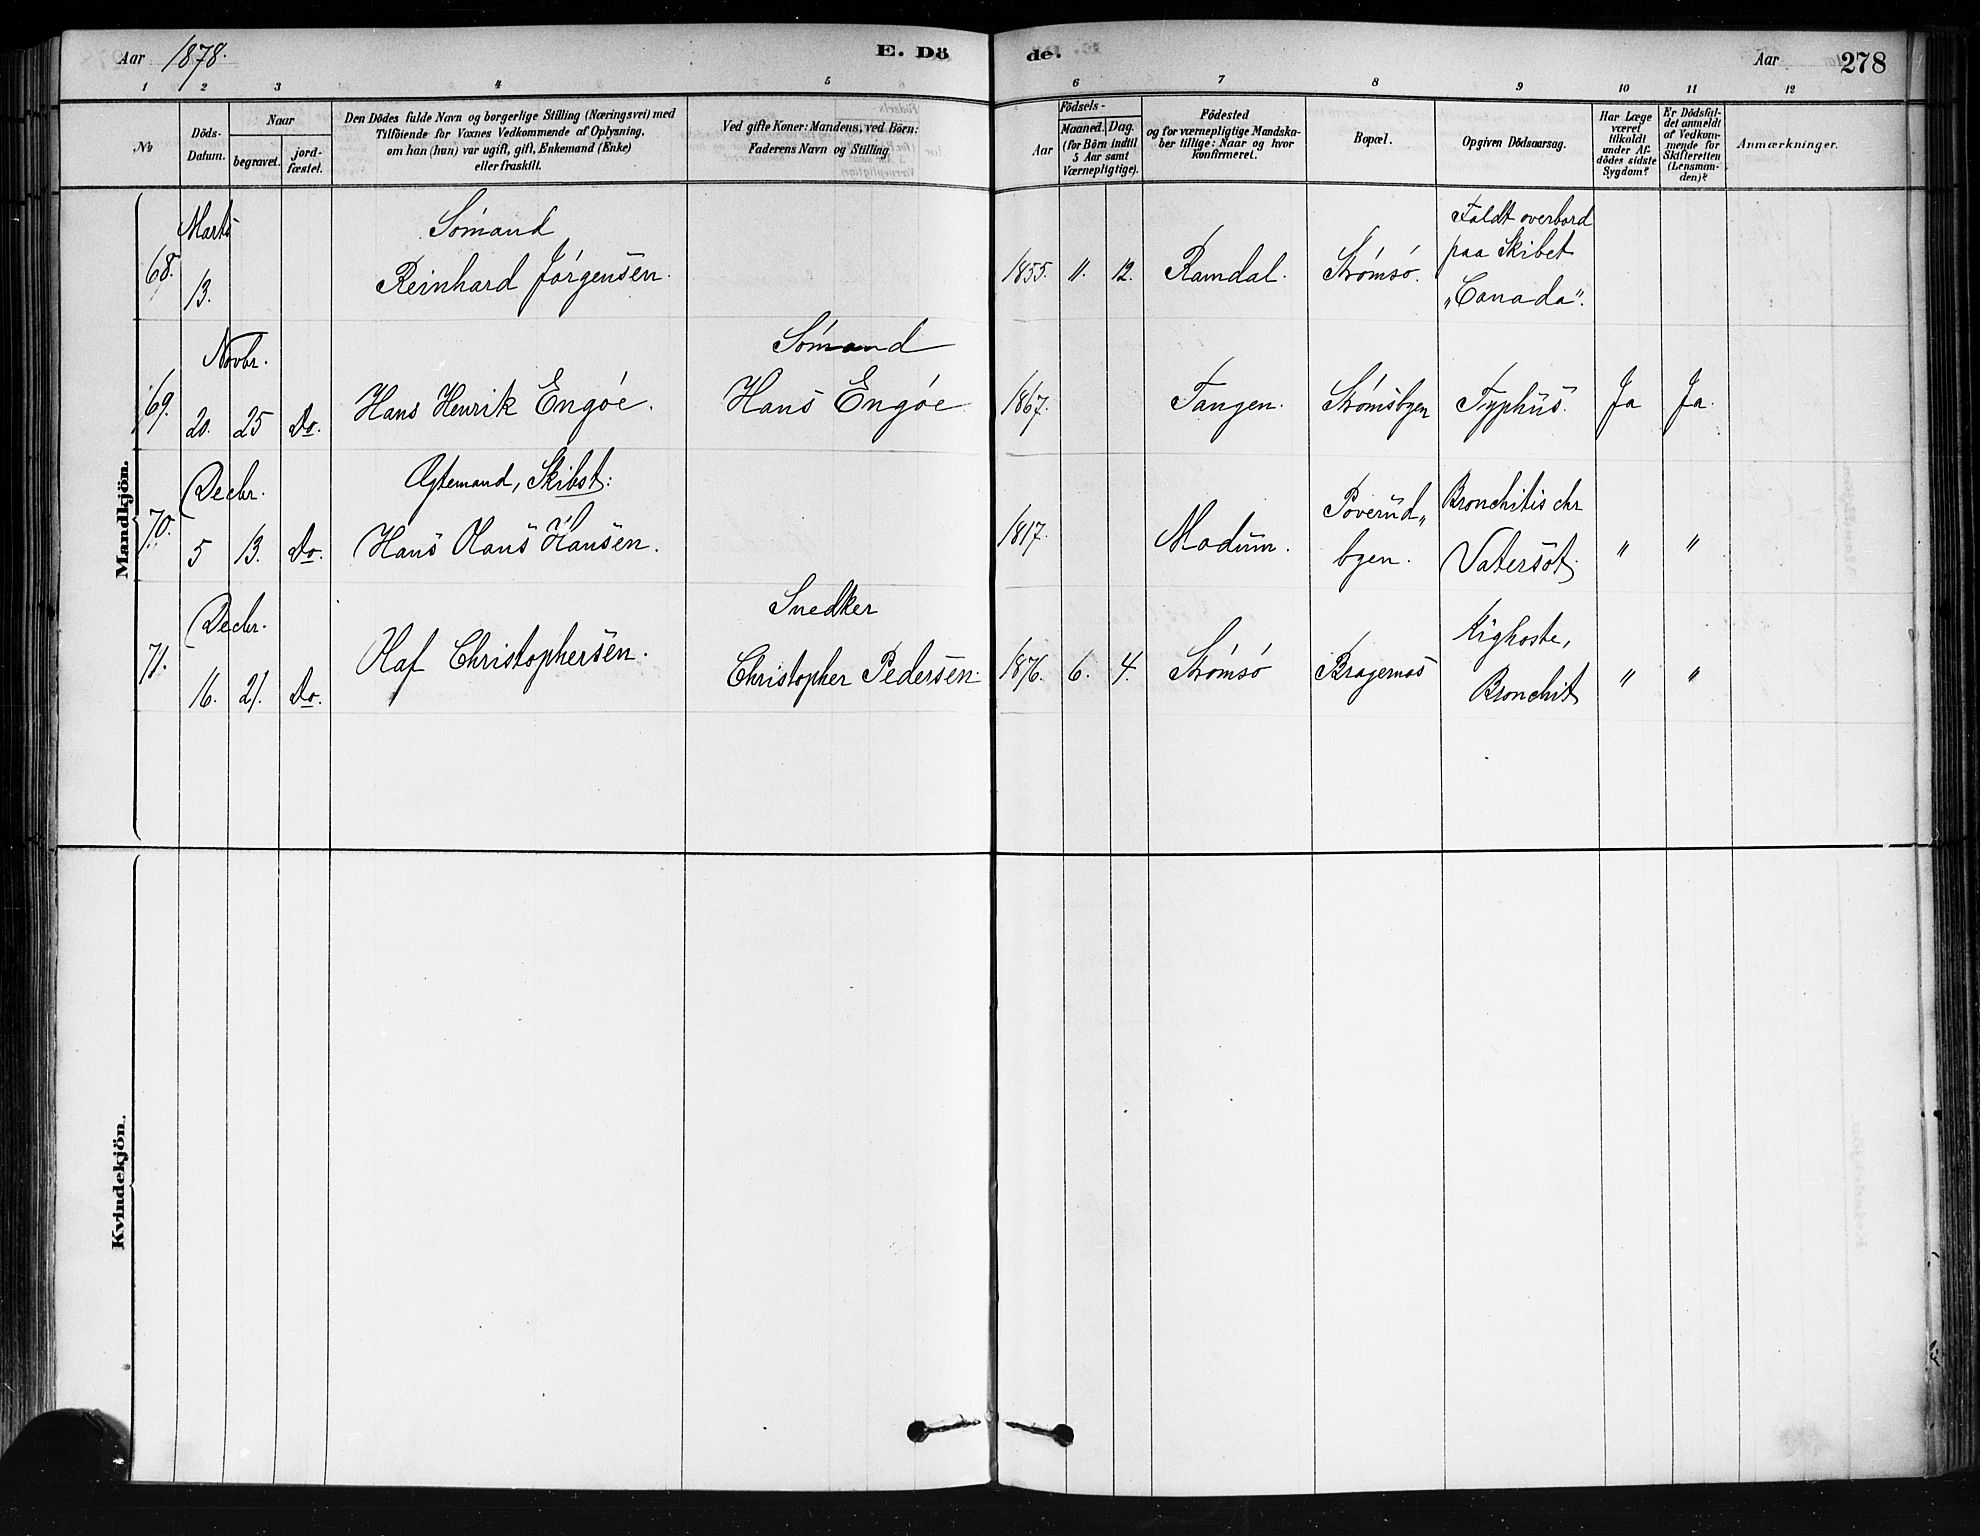 Aar 1878.
E. Dö
de.
Aar 278
1 2 3 4 5 6 7 8 9 10 11 12
No
Döds-
Datum.
Naar
begravet.
jord-
fæstet.
Den Dödes fulde Navn og borgerlige Stilling (Næringsvei) med
Tilföiende for Voxnes Vedkommende af Oplysning,
om han (hun) var ugift, gift, Enkemand (Enke)
eller fraskilt.
Ved gifte Koner: Mandens, ved Börn:
Faderens Navn og Stilling.
Födsels-
Aar
Maaned. Dag.
(for Börn indtil
5 Aar samt
Værnepligtige).
Födested
og for værnepligtige Mandska-
ber tillige: Naar og hvor
konfirmeret.
Bopæl.
Opgiven Dödsaarsag.
Har Læge
været
tilkaldt
under Af-
dödes sidste
Sygdom?
Er Dödsfal-
det anmeldt
af Vedkom-
mende for
Skifteretten
(Lensman-
den)?
Anmærkninger.
Mandkjön.
Marts
68.
13.
Sómand
Reinhard Jórgensen.
1855. 11. 12. Ramdal. Strómsó.
Faldt overbord
paa Skibet
„Canada".
Novbr.
69. 20. 25 Do. Hans Henrik Engóe.
Sómand
Hans Engóe
1867. Tangen. Strómsbyen Typhus. Ja Ja.
Decbr.
70. 5 13. Do.
Ægtemand, Skibst:
Hans Olaus Hansen.
1817. Modum.
Poverud„
byen.
Bronchitis chr
Vatersót. " "
Decbr.
71. 16. 21. Do. Olaf Christophersen.
Snedker
Christopher Pedersen.
1876. 6. 4. Strómsó Bragernæs
Kighoste,
Bronchit " "
Kvindekjön.